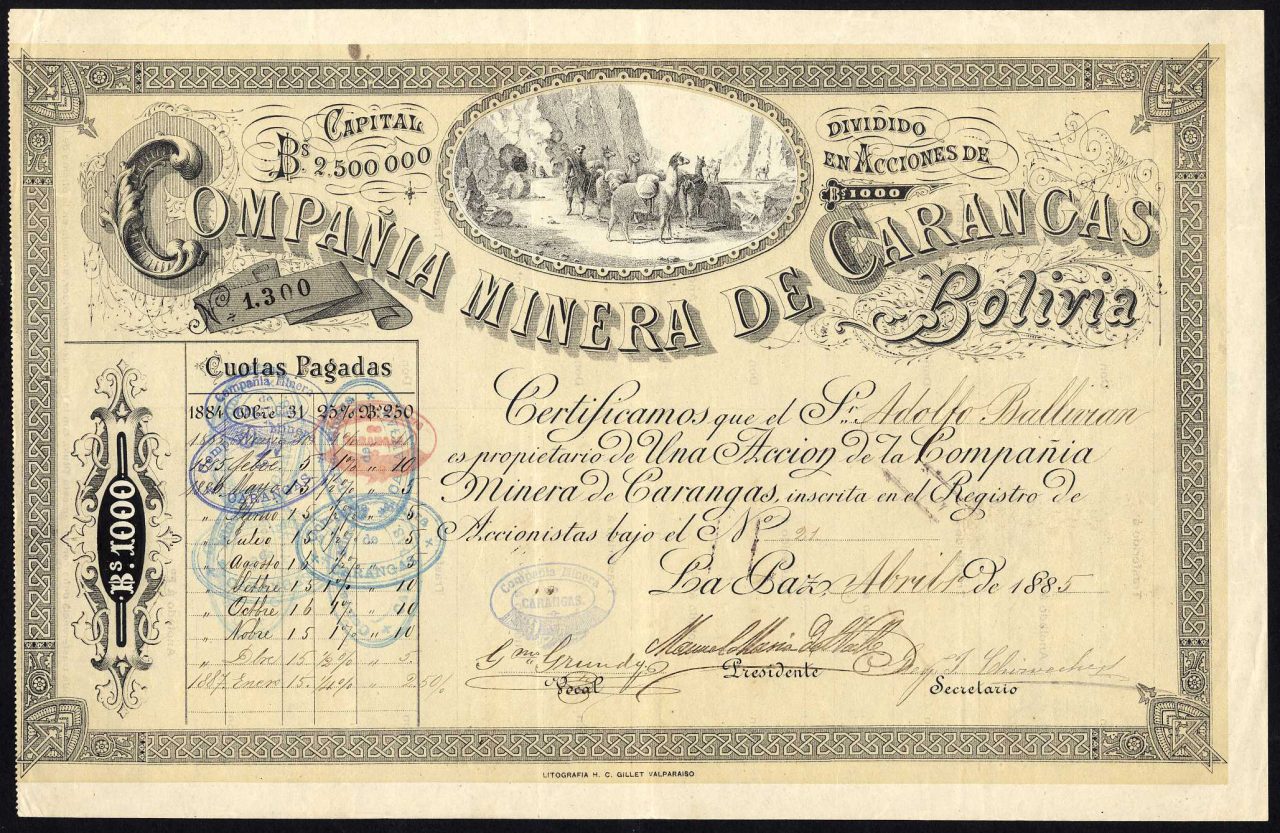 CAPITAL
Bs. 2.500 000
DIVIDIDO
EN ACCIONES DE
Bs 1000
COMPAÑIA MINERA DE CARANGAS
Bolivia
No 1.300
Cuotas Pagadas
1884 Dbre 31 25% Bs 250
1885 Febre 5 1% " 10
1886 Mayo 15 ½% " 5
" 15 ½% " 5
" Julio 15 ½% " 5
" Agosto 16 ½% " 5
" Setbre 15 1% " 10
" Octbre 16 1% " 10
" Nobre 15 1% " 10
" Dbe 15 ½%
1887 Enero 15 ¼% " 2.50%
Bs. 1000
Certificamos que el Sr. Adolfo Ballivian
es propietario de Una Accion de la Compañia
Minera de Carangas, inscrita en el Registro de
Accionistas bajo el No
La Paz, Abril 1o de 1885
Compañia Minera
de
CARANGAS
Gmo Grundy
Vocal
Manuel Maria Del Valle
Presidente
Secretario
LITOGRAFIA H. C. GILLET VALPARAISO